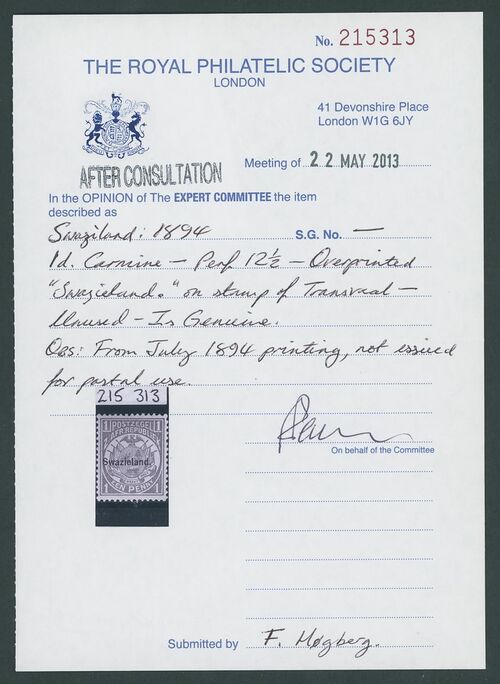 No. 215313
THE ROYAL PHILATELIC SOCIETY
LONDON
41 Devonshire Place
London W1G 6JY
AFTER CONSULTATION
Meeting of 22 MAY 2013
In the OPINION of The EXPERT COMMITTEE the item
described as
Swaziland: 1894 S.G. No. —
1d. Carmine — Perf 12½ — Overprinted
"Swazieland." on stamp of Transvaal —
Unused — Is Genuine.
Obs: From July 1894 printing, not issued
for postal use.
215 313
1 POSTZEGEL 1
Z. AFR. REPUBLIEK
Swazieland.
1 EEN PENNY 1
On behalf of the Committee
Submitted by F. Høgberg.